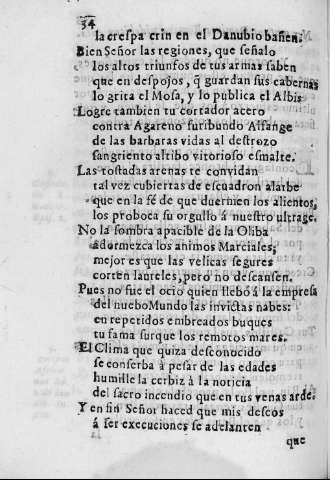 54
la crespa crin en el Danubio bañen:
Bien Señor las regiones, que señalo
los altos triunfos de tus armas saben
que en despojos, q̃ guardan sus cabernas
lo grita el Mosa, y lo publica el Albis
Logre tambien tu cortador acero
contra Agareno furibundo Alfange
de las barbaras vidas al destrozo
sangriento altibo vitorioso esmalte.
Las tostadas arenas te convidan
tal vez cubiertas de escuadron alarbe
que en la fé de que duermen los alientos,
los proboca su orgullo á nuestro ultrage.
No la sombra apacible de la Oliba
adormezca los animos Marciales,
mejor es que las velicas segures
corten laureles, pero no descansen.
Pues no fue el ocio quien llebó á la empresa
del nuebo Mundo las invictas nabes:
en repetidos embreados buques
tu fama surque los remotos mares.
El Clima que quiza desconocido
se conserba á pesar de las edades
humille la cerbiz á la noticia
del sacro incendio que en tus venas arde.
Y en fin Señor haced que mis deseos
á ser execuciones se adelanten
que